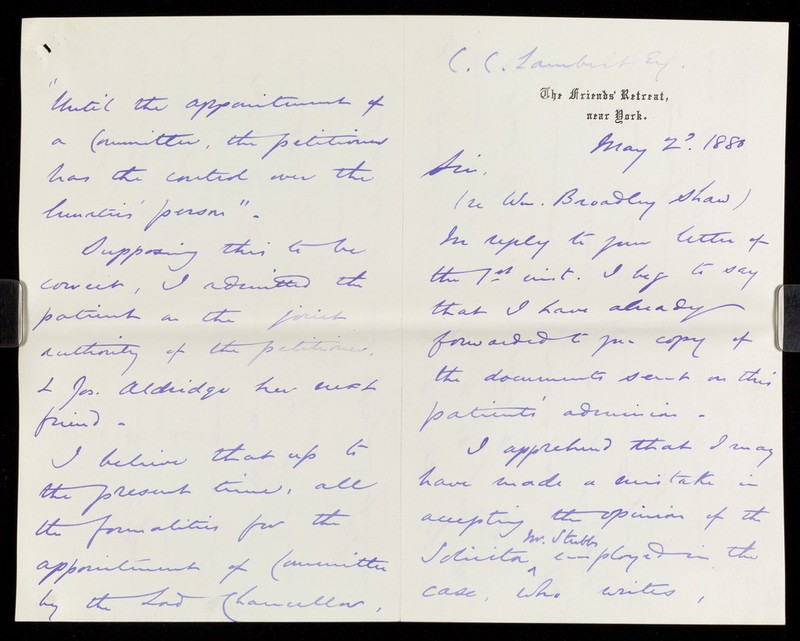 C. C. Lambert Esq.
The Friends' Retreat,
near York.
May 2d. 1880
Sir,
(re Wm. Broadley Shaw)
In reply to your letter of
the 1st inst. I beg to say
that I have already
forwarded to you copy of
the documents sent on this
patients' admission.
I apprehend that I may
have made a mistake in
accepting the opinion of the
Solicitor, Mr. Stubbs employed in the
case, who writes,
"Until the appointment of
a Committee, the petitioner
has the control over the
lunatics' person".
Supposing this to be
correct, I admitted the
patient on the joint
authority of the petitioner,
& Jos. Aldridge her next
friend.
I believe that up to
the present time, all
the formalities for the
appointment of Committee
by the Lord Chancellor,